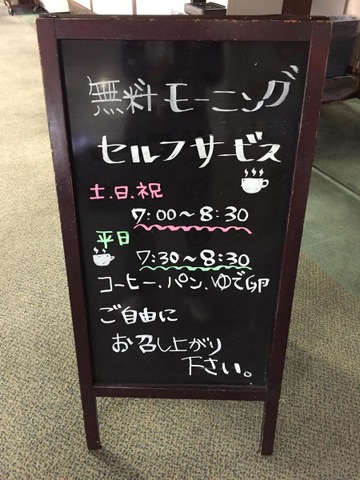 無料モーニング
セルフサービス
土.日.祝
7:00～8:30
平日
7:30～8:30
コーヒー、パン、ゆで卵
ご自由に
お召し上がり
下さい。